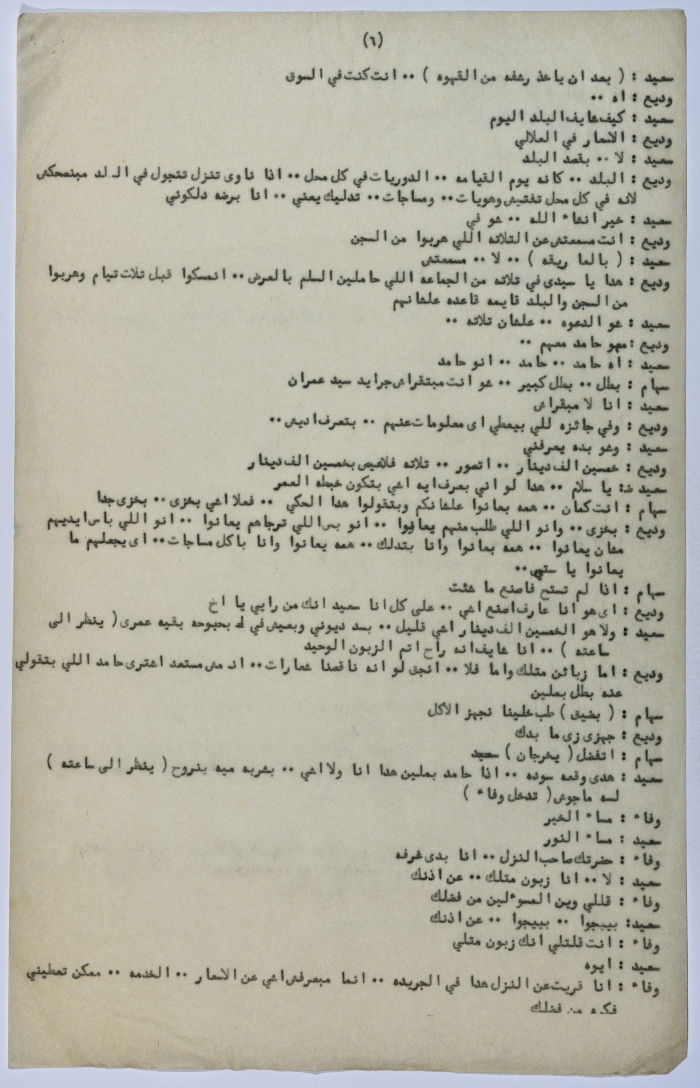 (٦)
سعيد : ( بعد ان ياخذ رشفه من القهوه ) ٠٠ انت كنت في السوق
وديع : اه ٠٠
سعيد : كيف شايف البلد اليوم
وديع : الاسعار في العلالي
سعيد : لا ٠٠ بقصد البلد
وديع : البلد ٠٠ كانه يوم القيامه ٠٠ الدوريات في كل محل ٠٠ اذا ناوى تنزل تتجول في البلد مبنصحكش
لانه في كل محل تفتيش وهويات ٠٠ ومساجات ٠٠ تدليك يعني ٠٠ انا برضه دلكوني
سعيد : خير انشاء الله ٠٠ شو في
وديع : انت مسمعتش عن التلاته اللي هربوا من السجن
سعيد : ( بالعا ريقه ) ٠٠ لا ٠٠ مسمعتش
وديع : هدا يا سيدى في تلاته من الجماعه اللي حاملين السلم بالعرض ٠٠ انمسكوا قبل تلات تيام وهربوا
من السجن والبلد قايمه قاعده علشانهم
سعيد : شو الدعوه ٠٠ علشان تلاته ٠٠
وديع : مهو حامد معهم ٠٠
سعيد : اه حامد ٠٠ حامد ٠٠ انو حامد
سهام : بطل ٠٠ بطل كبير ٠٠ شو انت مبتقراش جرايد سيد عمران
سعيد : انا لا مبقراش
وديع : وفي جائزه للي بيعطي اى معلومات عنهم ٠٠ بتعرف اديش ٠٠
سعيد : وشو بده يعرفني
وديع : خمسين الف دينار ٠٠ اتصور ٠٠ تلاته فلاعيص بخمسين الف دينار
سعيد : يا سلام ٠٠ هدا لو اني بعرف ايه اشي بتكون خبطه العمر
سهام : انت كمان ٠٠ همه بعانوا علشانكم وبتقولوا هدا الحكي ٠٠ فعلا اشي بخزى ٠٠ بخزى جدا
وديع : بخزى ٠٠ وانو اللي طلب منهم يعانوا ٠٠ انو بس اللي ترجاهم يعانوا ٠٠ انو اللي باس ايديهم
مشان يعانوا ٠٠ همه بعانوا وانا بتدلك ٠٠ همه يعانوا وانا باكل مساجات ٠٠ اى يجعلهم ما
يعانوا يا ستي ٠٠
سهام : اذا لم تستح فاصنع ما شئت
وديع : اى هو انا عارف اصنع اشي ٠٠ على كل انا سعيد انك من رايي يا اخ
سعيد : ولا هو الخمسين الف دينار اشي قليل ٠٠ بسد ديوني وبعيش في بحبوحه بقيه عمرى ( ينظر الى
ساعته ) ٠٠ انا شايف انه راح اتم الزبون الوحيد
وديع : اما زبائن متلك واما فلا ٠٠ انجق لو انه ناقصنا شعارات ٠٠ انـ مش مستعد اشترى حامد اللي بتقولي
عنه بطل بملين
سهام : ( بضيق ) طب خلينا نجهز الاكل
وديع : جهزى زى ما بدك
سهام : اتفضل ( يخرجان )
سعيد : هدى وقعه سوده ٠٠ اذا حامد بملين هدا انا ولا اشي ٠٠ بشربه ميه بنروح ( ينظر الى ساعته )
لسه ماجوش ( تدخل وفاء )
وفاء : مساء الخير
سعيد : مساء النور
وفاء : حضرتك صاحب النزل ٠٠ انا بدى غرفه
سعيد : لا ٠٠ انا زبون متلك ٠٠ عن اذنك
وفاء : قللي وين المسوءلين من فضلك
سعيد: بييجوا ٠٠ بييجوا ٠٠ عن اذنك
وفاء : انت قلتلي انك زبون متلي
سعيد : ايوه
وفاء : انا قريت عن النزل هدا في الجريده ٠٠ انما مبعرفش اشي عن الاسعار ٠٠ الخدمه ٠٠ ممكن تعطيني
فكره من فضلك